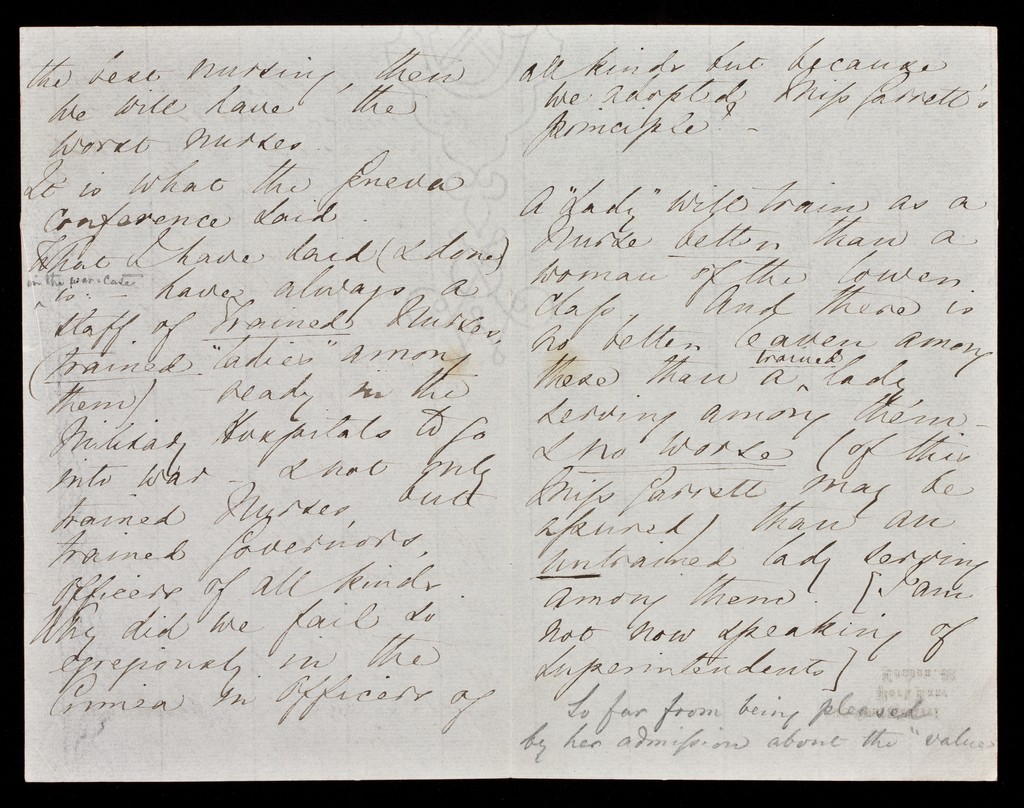 the best nursing, then
we will have the
worst nurses.
It is what the Geneva
Conference said.
What I have said (& done)
in the war-case
is: - have always a
staff of trained Nurses,
(trained "ladies" among
them) ready in the
Military Hospitals to go
into war - & not only
trained Nurses, but
trained Governors,
Officers of all kinds.
Why did we fail so
egregiously in the
Crimea in Officers of
all kinds but because
we adopted Miss Garrett's
principle? -
A "Lady" will train as a
Nurse better than a
woman of the lower
class. And there is
no better leaven among
trained
these than a ^ lady
serving among them -
& no worse (of this
Miss Garrett may be
assured) than an
untrained lady serving
among them. [I am
not now speaking of
Superintendents]
So far from being pleased
by her admission about the "value